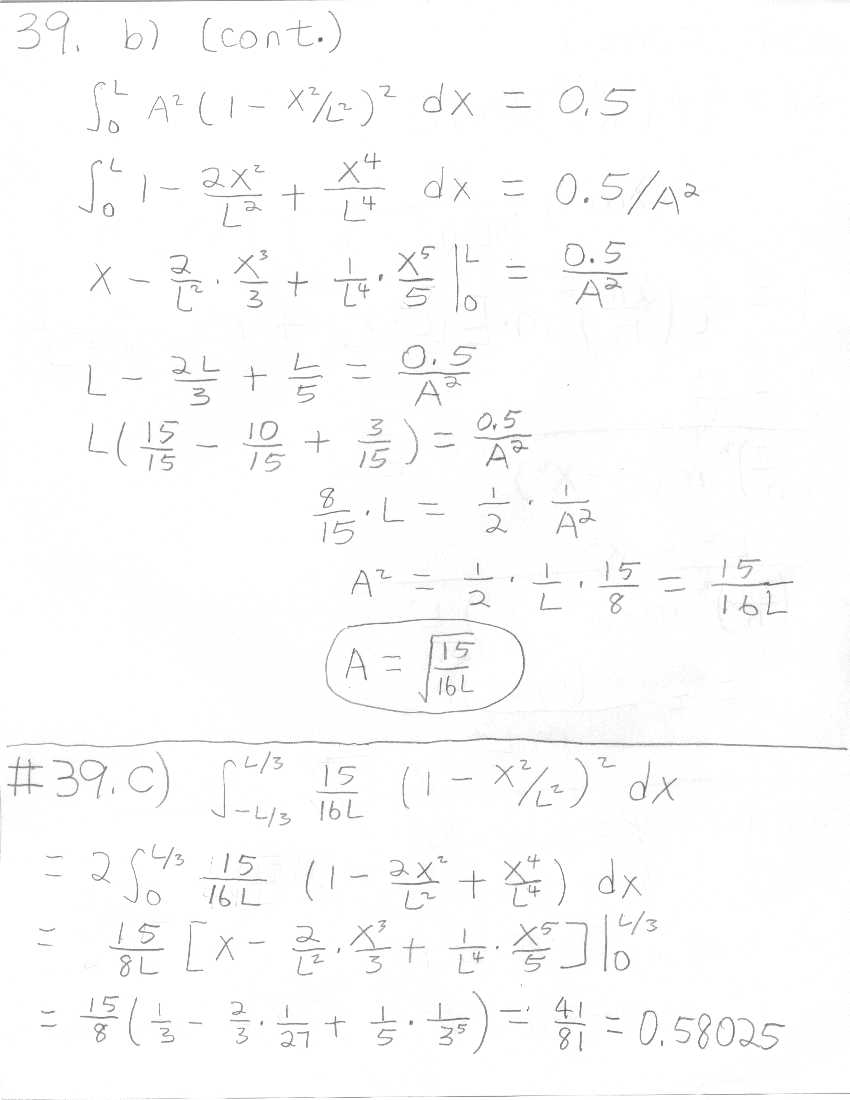 39. b) (cont.)
∫₀ᴸ A² (1 - X²/L²)² dx = 0.5
∫₀ᴸ 1 - 2X²/L² + X⁴/L⁴ dx = 0.5/A²
X - 2/L² · X³/3 + 1/L⁴ · X⁵/5 |₀ᴸ = 0.5/A²
L - 2L/3 + L/5 = 0.5/A²
L(15/15 - 10/15 + 3/15) = 0.5/A²
8/15 · L = 1/2 · 1/A²
A² = 1/2 · 1/L · 15/8 = 15/16L
A = √(15/16L)
#39.c) ∫_{-L/3}^{L/3} 15/16L (1 - X²/L²)² dx
= 2∫₀^{L/3} 15/16L (1 - 2X²/L² + X⁴/L⁴) dx
= 15/8L [X - 2/L² · X³/3 + 1/L⁴ · X⁵/5]|₀^{L/3}
= 15/8 (1/3 - 2/3 · 1/27 + 1/5 · 1/3⁵) = 41/81 = 0.58025